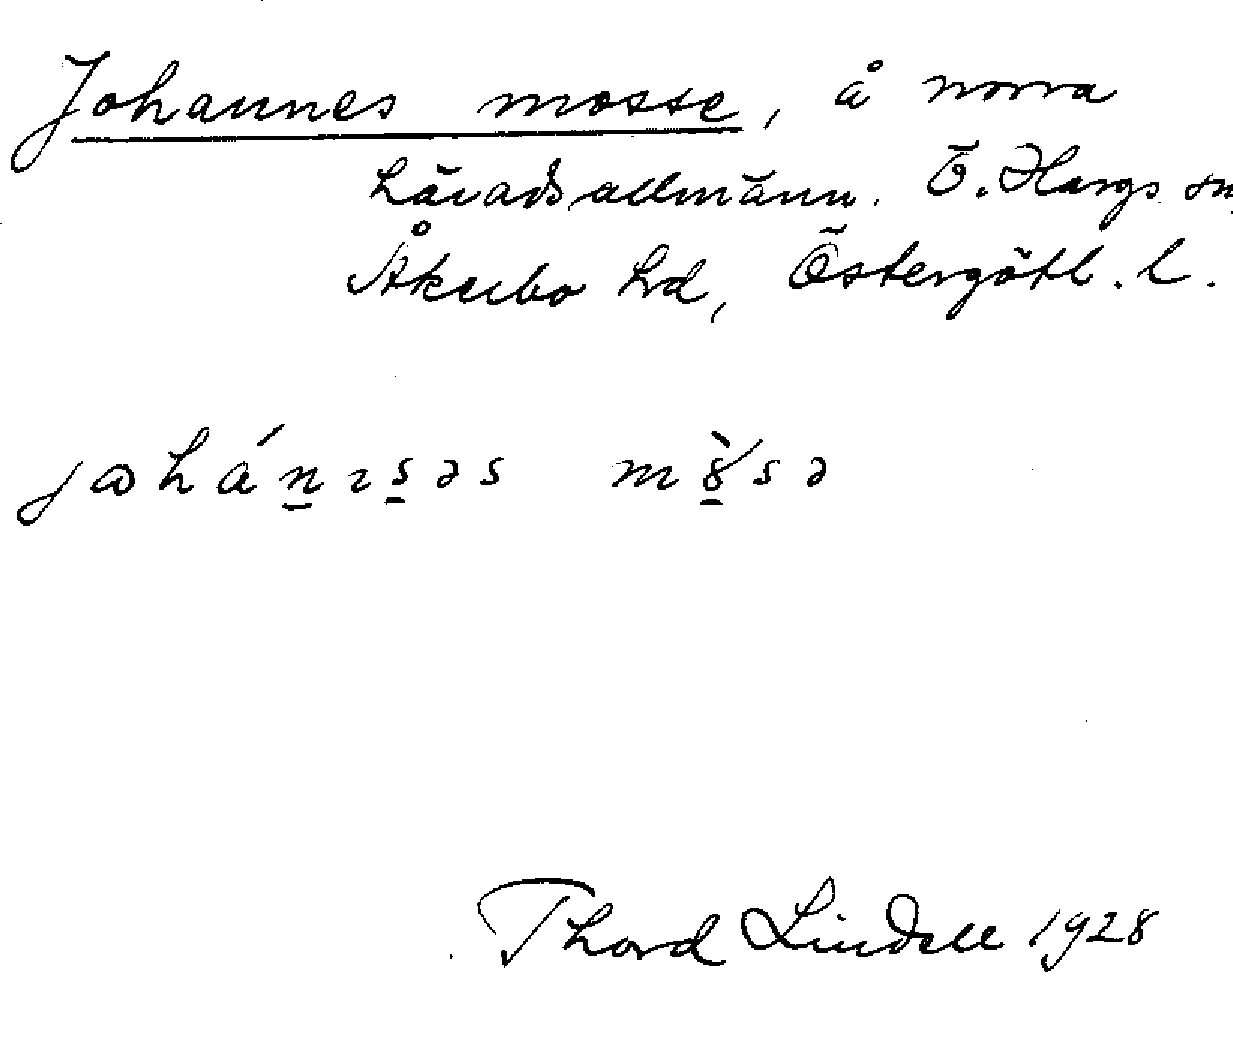 Johannes mosse, å norra
häradsallmänn. Ö. Hargs sn
Åkerbo hd, Östergötl. l.
Thord Lindell 1928